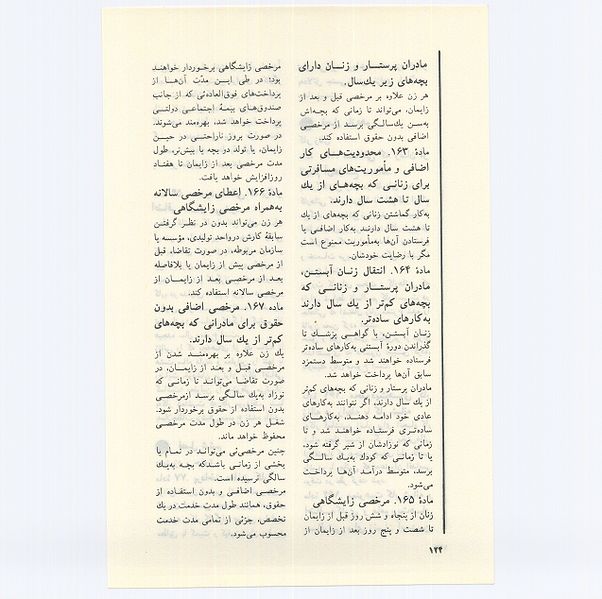 مادران پرستـار و زنـان دارای
بچه‌های زیر یك‌سال.
هر زن علاوه بر مرخصی قبل و بعد از
زایمان، می‌تواند تا زمانی که بچه‌اش
به‌سن یك‌سالگی برسد از مرخصی
اضافی بدون حقوق استفاده کند.
مادهٔ ۱۶۳. محدودیت‌هـای کار
اضافی و مأموریت‌های مسافرتی
برای زنـانی که بچه‌هـای از یك
سال تا هشت سال دارند.
به‌کار گماشتن زنانی که بچه‌های از یك
تا هشت سال دارند به‌کار اضافـی یا
فرستادن آن‌ها به‌مأموریت ممنوع است
مگر با رضایت خودشان.
مادهٔ ۱۶۴. انتقال زنـان آبستـن،
مادران پرستـار و زنـانـی که
بچه‌های کم‌تر از یك سال دارند
به‌کارهای ساده‌تر.
زنـان آبستن، با گواهـی پزشـك تا
گذراندن دورهٔ آبستنی به‌کارهای ساده‌تر
فرستاده خواهند شد و متوسط دستمزد
سابق آن‌ها پرداخت خواهد شد.
مادران پرستار و زنانی که بچه‌های کم‌تر
از یك سال دارند، اگر نتوانند به‌کارهای
عادی خود ادامه دهنـد، به‌کارهـای
ساده‌تـری فرستـاده خواهنـد شد و تا
زمانی که نوزادشان از شیر گرفته شود،
یا تا زمانـی که کودك به‌یك سالـگی
برسد، متوسط درآمـد آن‌هـا پرداخـت
می‌شود.
مادهٔ ۱۶۵. مرخصی زایشگاهی
زنان از پنجاه و شش روز قبل از زایمان
تا شصت و پنج روز بعد از زایمان از
مرخصی زایشگاهی برخـوردار خواهـند
بود؛ در طی ایـن مدّت آن‌هـا از
پرداخت‌های فوق‌العاده‌ئی که از جانب
صندوق‌های بیمـهٔ اجتماعـی دولتـی
پرداخت خواهد شد، بهره‌مند می‌شوند.
در صورت بروز ناراحتـی در حیـن
زایمان، یا تولد دو بچه یا بیش‌تر، طول
مدت مرخصی بعد از زایمان تا هفتـاد
روزافزایش خواهد یافت.
مادهٔ ۱۶۶. اِعطای مرخصی سالانه
به‌همراه مرخصی زایشگاهی
هر زن می‌تواند بدون در نظـر گرفتـن
سابقهٔ کارش درواحد تولیدی، مؤسسه یا
سازمان مربوطه، در صورت تقاضا، قبل
از مرخصی پیش از زایمان یا بلافاصله
بعـد از مرخصـی بعـد از زایمـان از
مرخصی سالانه استفاده کند.
ماده ۱۶۷. مرخصی اضافی بدون
حقوق برای مادرانی که بچه‌های
کم‌تر از یك سال دارند.
یك زن علاوه بر بهره‌منـد شدن از
مرخصـی قبـل و بعـد از زایمـان، در
صورت تقاضـا می‌توانـد تا زمانـی که
نوزاد به‌یك سالگی برسـد ازمرخصـی
بدون استفاده از حقوق برخوردار شود.
شغل هر زن در طول مدت مرخصی
محفوظ خواهد ماند.
چنین مرخصی‌ئی می‌تواند در تمـام یا
بخشی از زمانـی باشدکه بچـه به‌یـك
سالگی نرسیده است.
مرخصـی اضافـی و بدون استفـاده از
حقوق، همانند طول مدت خدمت در یك
تخصص، جزئی از تمامی مدت خدمت
محسوب می‌شود.
۱۲۴